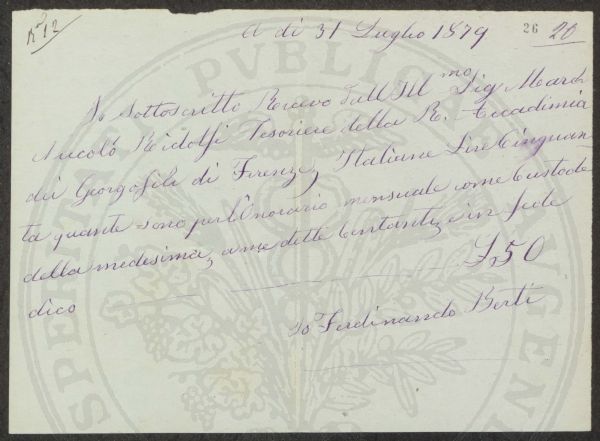 No 12
A dì 31 Luglio 1879
26 20
Io Sottoscritto Ricevo dall Ill mo Sig March
Niccolò Ridolfi Tesoriere della R. Accadimia
dei Georgofili di Firenze, Italiane Lire Cinquan
ta quante sono per l'Onorario mensuale come Custode
della medesima, a me dette Contanti, e in fede
dico L. 50
Io Ferdinando Berti
PUBLICAE
SPERITATI
AUGENDAE